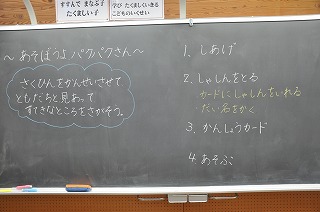 すすんで まなぶ子
たくましい子
学び たくましくいきる
こどものいくせい
～あそぼうよ パクパクさん～
さくひんをかんせいさせて
ともだちと見あって
すてきなところをさがそう。
1. しあげ
2. しゃしんをとる
カードにしゃしんをいれる
だい名をかく
3. かんしょうカード
4. あそぶ